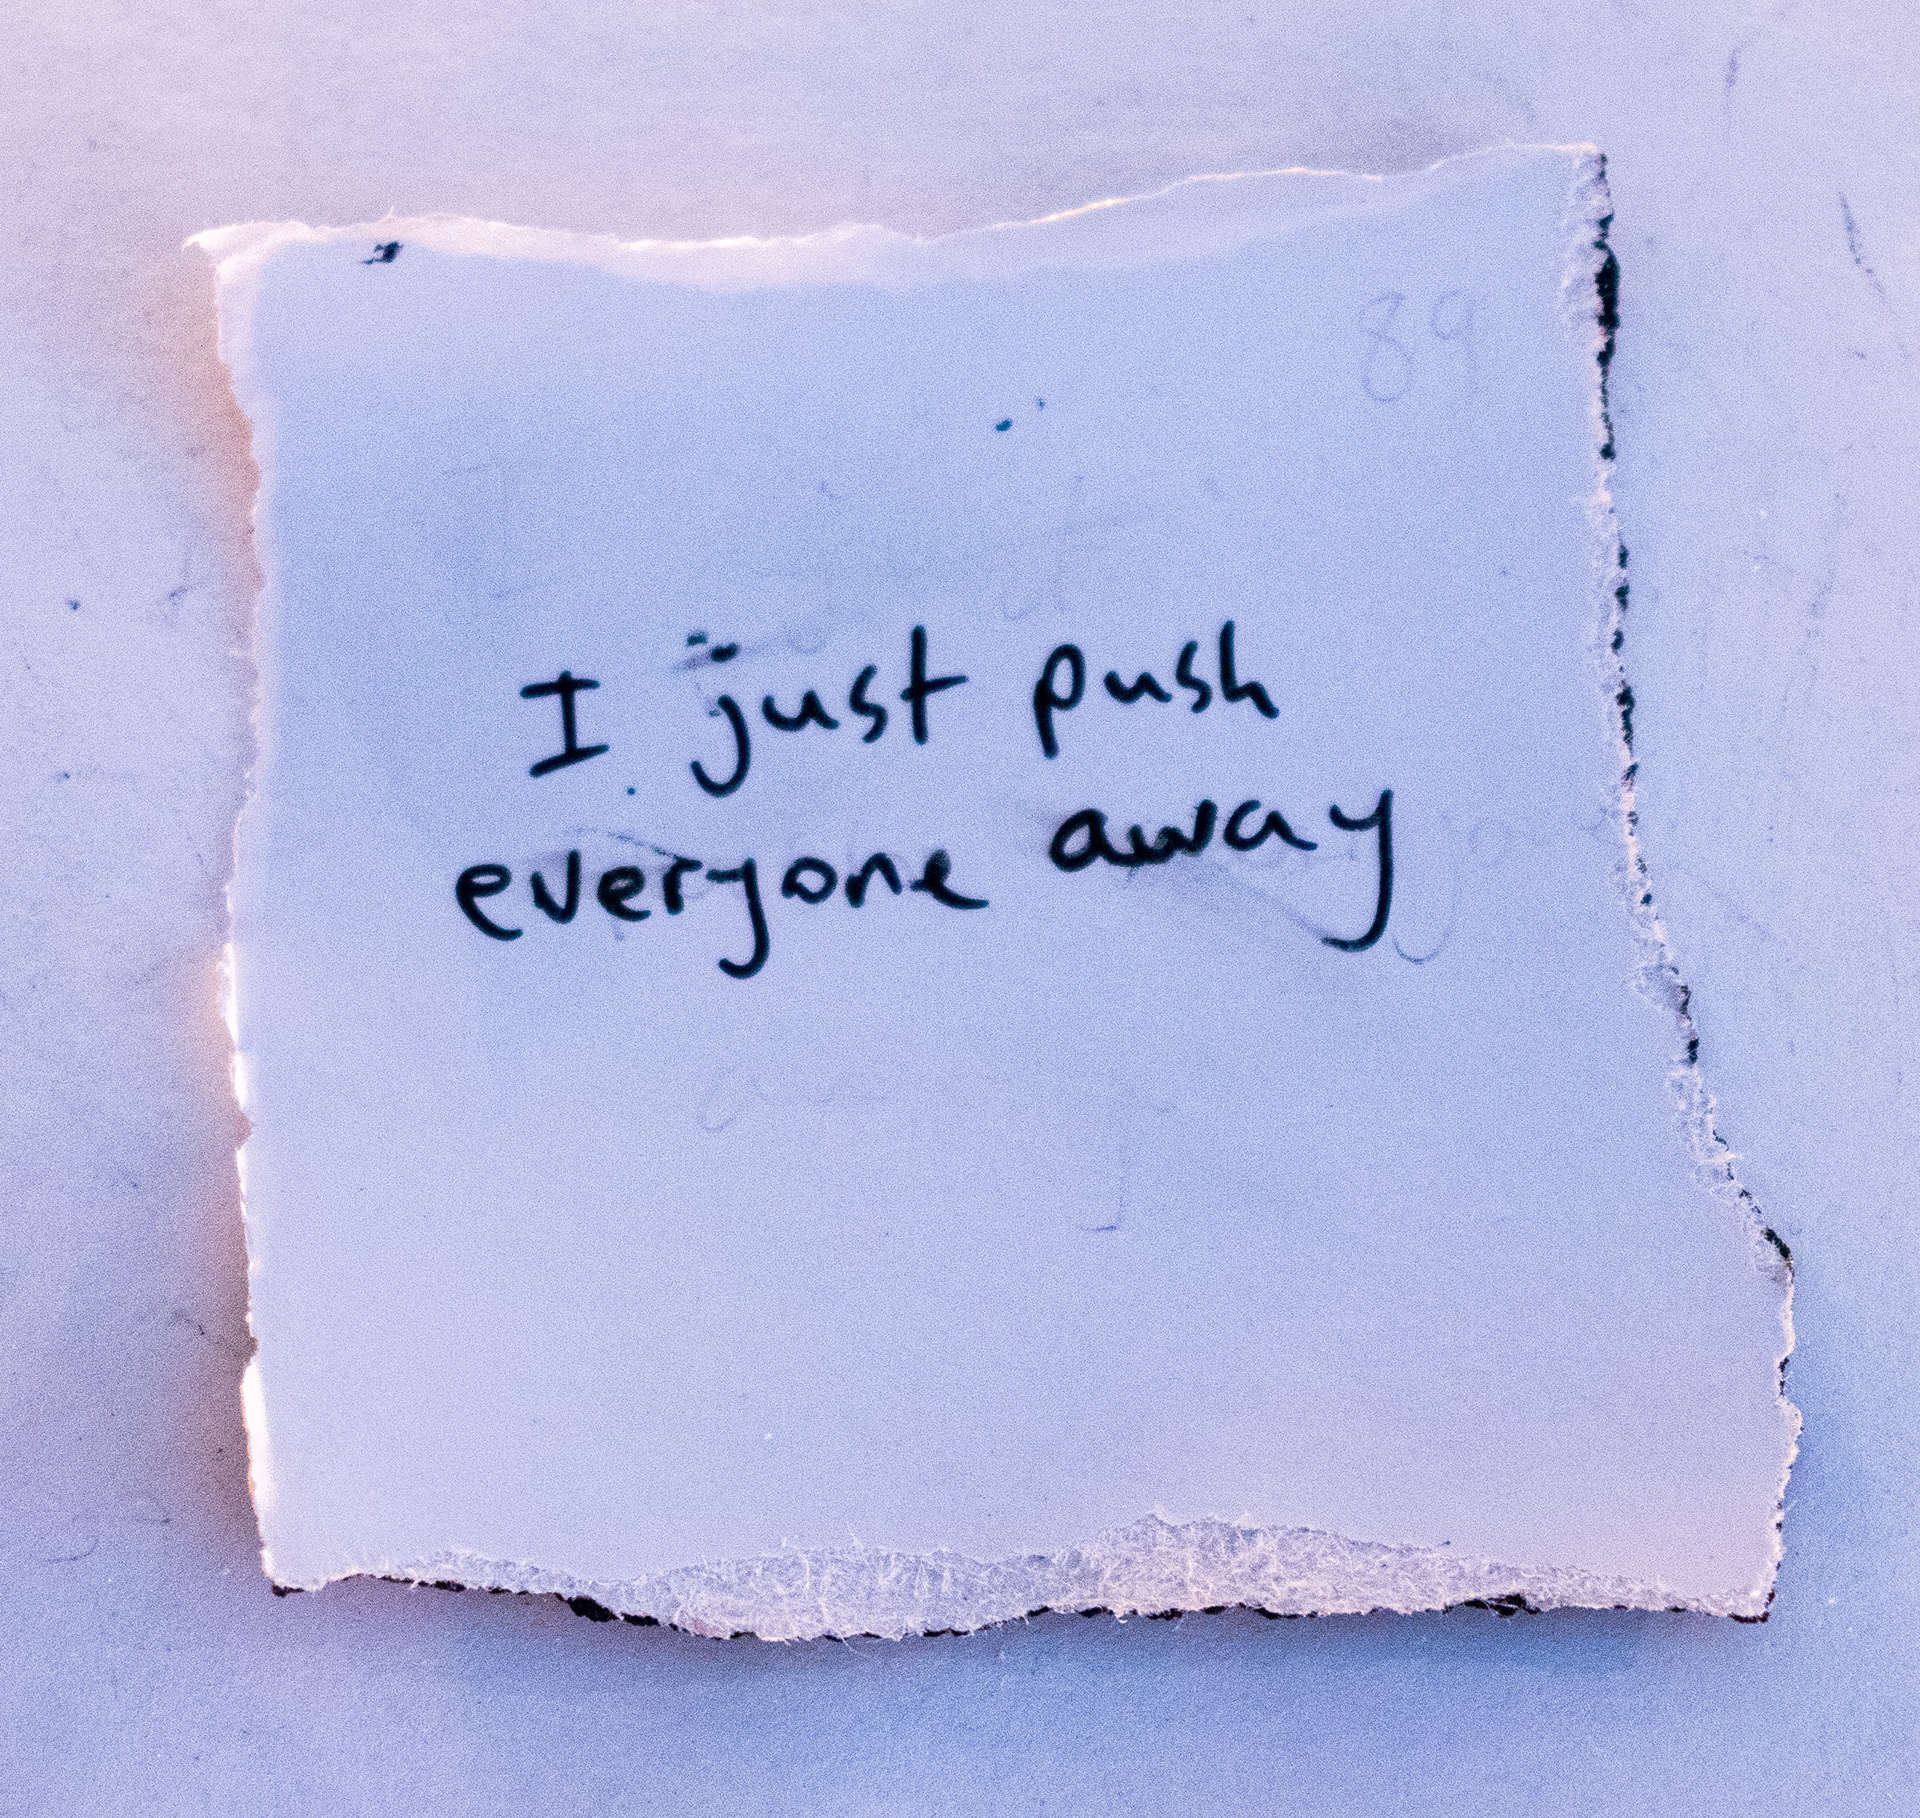 89
I just push
everyone away